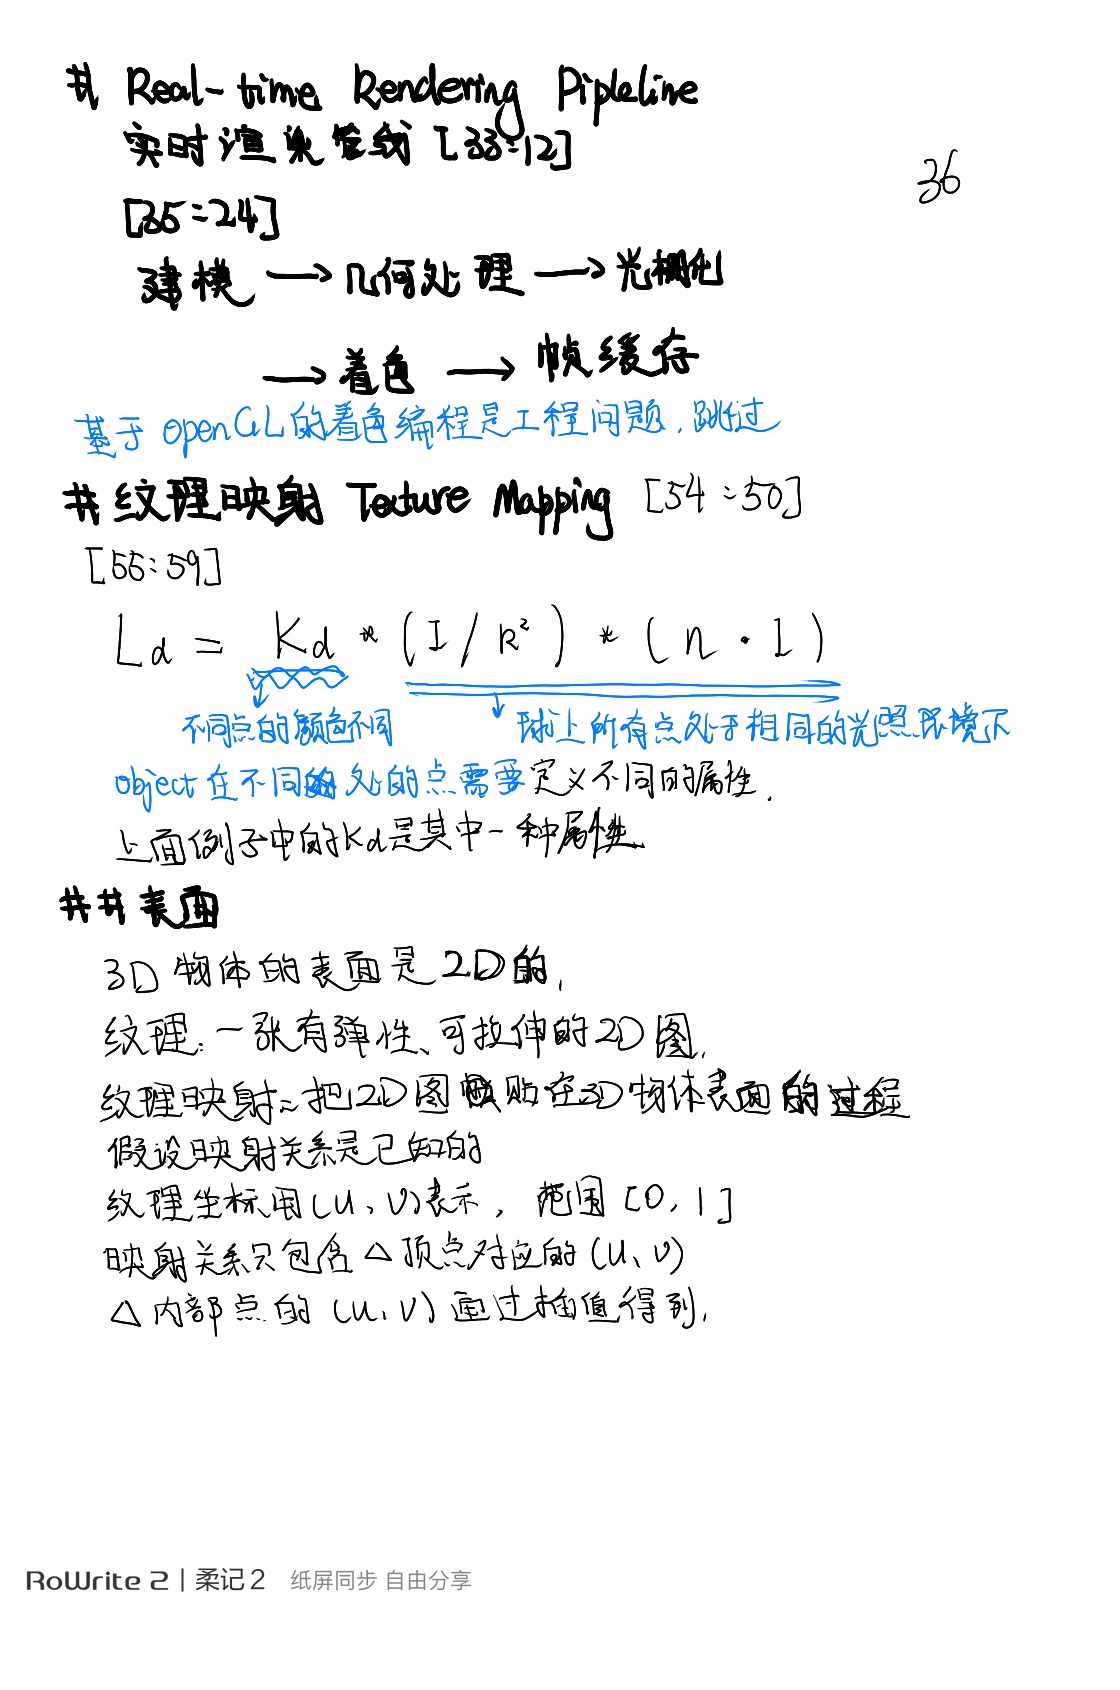 # Real-time Rendering Pipleline
实时渲染管线 [33:12]
36
[35:24]
建模 → 几何处理 → 光栅化
→ 着色 → 帧缓存
基于 openGL的着色编程是工程问题，跳过
# 纹理映射 Texture Mapping [54:50]
[55:59]
Ld = Kd * (I/R²) * (n·l)
不同点的颜色不同
球上所有点处于相同的光照环境下
object在不同处的点需要定义不同的属性.
上面例子中的Kd是其中一种属性.
## 表面
3D 物体的表面是2D的.
纹理: 一张有弹性、可拉伸的2D图.
纹理映射: 把2D图贴在3D物体表面的过程
假设映射关系是已知的
纹理坐标用(u、v)表示，范围[0,1]
映射关系只包含△顶点对应的(u、v)
△内部点的(u、v)通过插值得到.
RoWrite 2 | 柔记 2 纸屏同步 自由分享